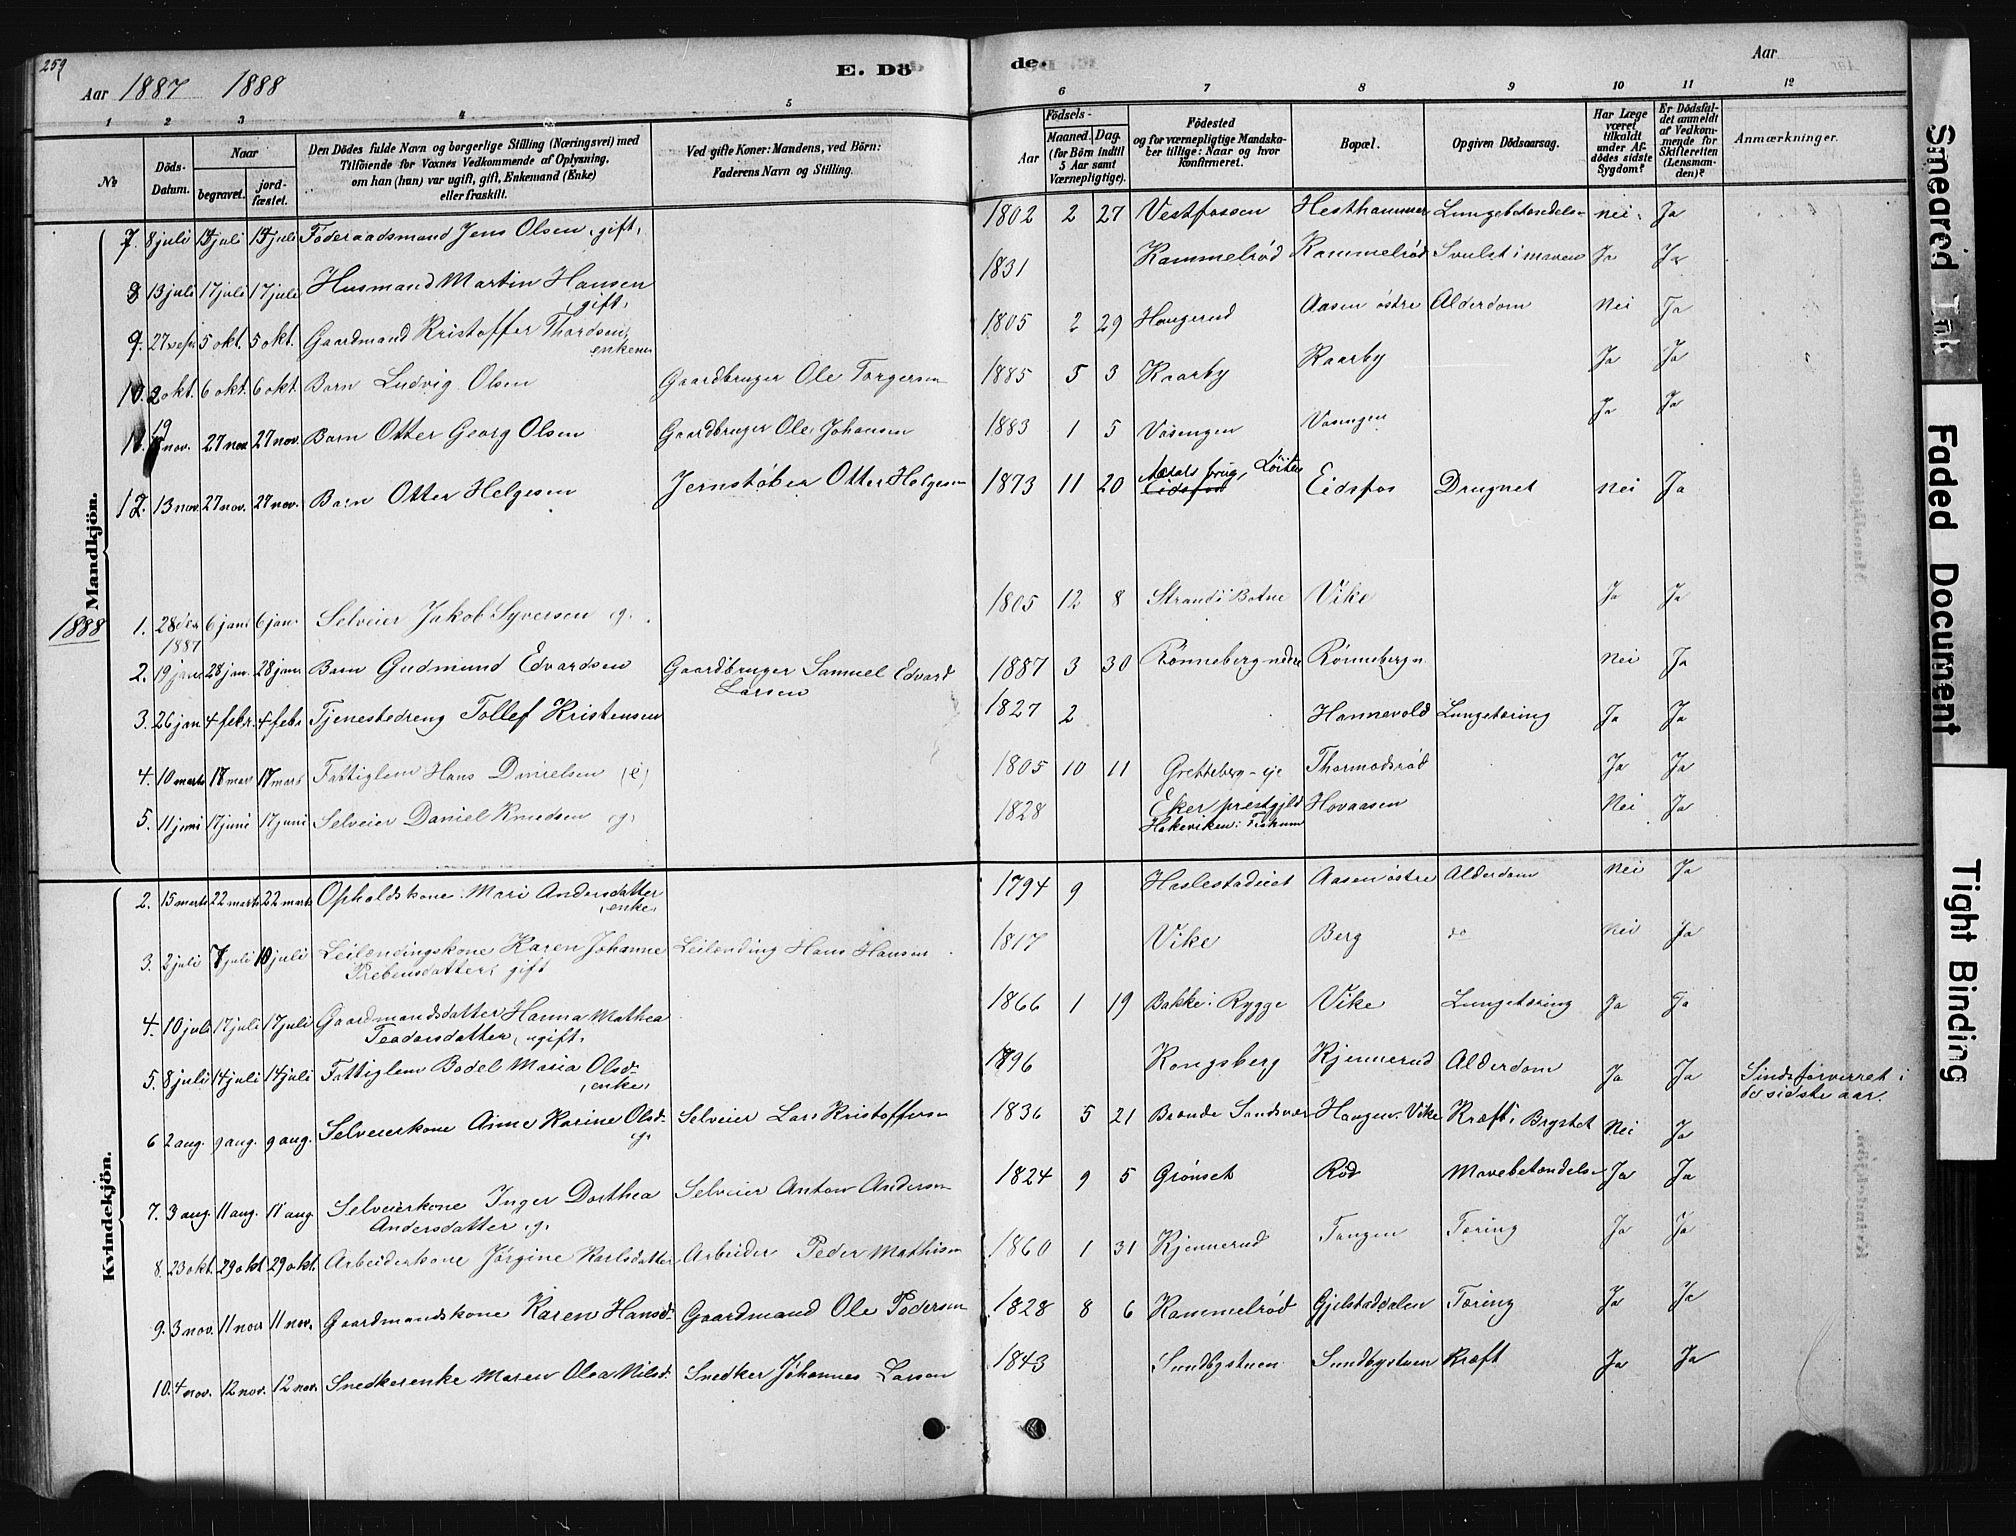 259
Aar 1887 1888
E. Dö
de.
Aar
1 2 3 4 5 6 7 8 9 10 11 12
No
Döds-Datum.
Naar
begravet.
jordfæstet.
Den Dödes fulde Navn og borgerlige Stilling (Næringsvei) med
Tilföiende for Voxnes Vedkommende af Oplysning,
om han (hun) var ugift, gift, Enkemand (Enke)
eller fraskilt.
Ved gifte Koner: Mandens, ved Börn:
Faderens Navn og Stilling.
Födsels-
Aar
Maaned. Dag.
(for Börn indtil
5 Aar samt
Værnepligtige).
Födested
og for værnepligtige Mandskaber
tillige: Naar og hvor
Konfirmeret.
Bopæl.
Opgiven Dödsaarsag.
Har Læge
været
tilkaldt
under Afdödes
sidste
Sygdom?
Er Dödsfaldet
anmeldt
af Vedkommende
for
Skifteretten
(Lensmanden)?
Anmærkninger.
Mandkjön.
7. 8 juli 15 juli 15 juli Föderaadsmand Jens Olsen, gift, 1802 2 27 Vestfossen Hesthammer Lungebetændels- nei Ja
8 13 juli 17 juli 17 juli Husmand Martin Hansen gift, 1831 Kammelrød Kammelrød Svulst i maven Ja Ja
9. 27 sep. 5 okt. 5 okt. Gaardmand Kristoffer Thordsen, enkem 1805 2 29 Haugerud Aasen østre Alderdom Nei Ja
10. 2 okt. 6 okt. 6 okt. Barn Ludvig Olsen Gaardbruger Ole Torgersen 1885 5 3 Raarby Raarby Ja Ja
11. 19 nov. 27 nov 27 nov. Barn Otter Georg Olsen Gaardbruger Ole Johansen 1883 1 5 Vosengen Vosengen Ja Ja
12. 13 nov. 27 nov. 27 nov. Barn Otter Helgesen Jernstøber Otter Helgesen 1873 11 20 Aadals brug, Löiten Eidsfos Eidsfos Drugnet Nei Ja
1888
1. 28 des 1887 6 jan 6 jan Selveier Jakob Syversen g. 1805 12 8 Strand i Botne Vike Ja Ja
2. 19 jan 28 jan. 28 jan Barn Gudmund Edvardsen Gaardbruger Samuel Edvard Larsen 1887 3 30 Rønneberg nedre Rønneberg n. Nei Ja
3. 26 jan 4 febr. 4 febr Tjenestedreng Tollef Kristensen 1827 2 Hannevold Lungetæring Ja Ja
4. 10 marts 17 mar 17 mars Fattiglem Hans Danielsen (e) 1805 10 11 Gretteberg-eje Thormodsrød Ja Ja
5. 11 juni 17 juni 17 juni Selveier Daniel Knudsen g, 1828 Eker prestgjeld Hakaviken i Fiskum Hovaasen Nei Ja
Kvindekjön.
2. 15 marts 22 marts 22 marts Opholdskone Mari Andersdatter enke, 1794 9 Haslestadeiet Aasen østre Alderdom Nei Ja
3. 2 juli 7 juli 10 juli Leilendingskone Karen Johanne Prebensdatter, gift Leilending Hans Hansen 1817 Vike Berg do Nei Ja
4. 10 juli 17 juli 17 juli Gaardmandsdatter Hanna Mathea Teodorsdatter, ugift, 1866 1 19 Bakke i Rygge Vike Lungetæring Ja Ja
5. 8 juli 14 juli 14 juli Fattiglem Bodel Maria Olsd: enke, 1796 Kongsberg Kjennerud Alderdom Ja Ja Sindsforvirret i de sidste aar.
6 2 aug. 9 aug. 9 aug. Selveierkone Anne Karine Olsd- g, Selveier Lars Kristoffersen 1836 5 21 Brænde Sandsvær Haugen, Vike Kræft i Brystet Nei Ja
7. 3 aug. 11 aug. 11 aug Selveierkone Inger Dorthea Andersdatter g, Selveier Anton Andersen 1824 9 5 Grønset Rød Mavebetændels- Ja Ja
8. 23 okt. 29 okt 29 okt. Arbeiderkone Jørgine Karlsdatter Arbeider Peder Mathisen 1860 1 31 Kjennerud Tangen Tæring Ja Ja
9. 3 nov. 11 nov 11 nov. Gaardmandskone Karen Hansd: Gaardmand Ole Pedersen 1828 8 6 Kammelrød Gjelstaddalen Tæring Ja Ja
10. 4 nov. 12 nov. 12 nov. Snedkerenke Maren Olea Nilsd: Snedker Johannes Larsen 1843 Sundbystuen Sundbystuen Kræft Ja Ja
Smeared Ink
Faded Document
Tight Binding